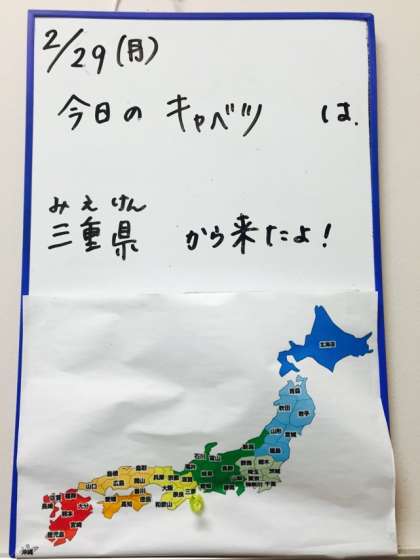 2/29(月)
今日の キャベツ は.
みえけん
三重県 から来たよ!
北海道
青森
秋田
岩手
山形
宮城
福島
新潟
石川 富山
島根
鳥取
山口
広島
岡山
兵庫
京都
滋賀
大阪
奈良
三重
和歌山
香川
愛媛
徳島
高知
福岡
佐賀
長崎
大分
熊本
宮崎
鹿児島
沖縄
福井
岐阜
長野
愛知
群馬
栃木
茨城
埼玉
東京
千葉